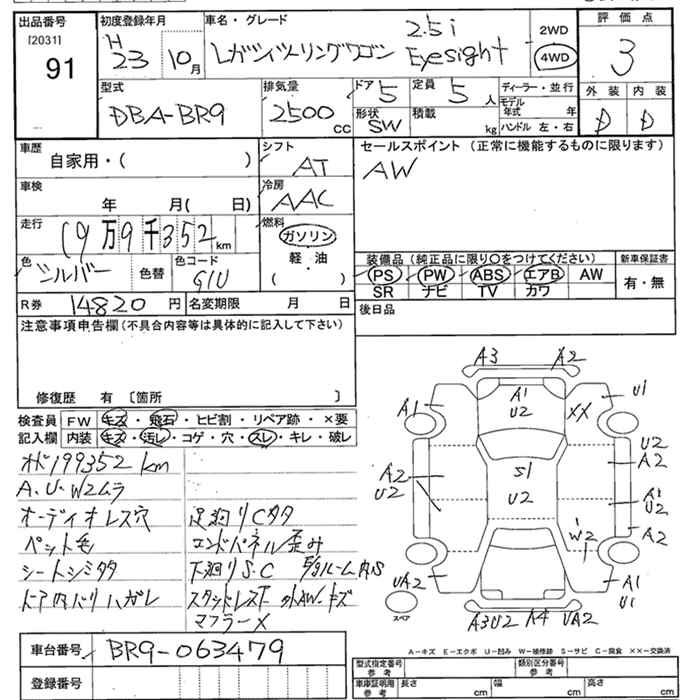 出品番号 初度登録年月 車名・グレード 2.5i 2WD 評価点
[2031] H23 10月 レガシィツーリングワゴン Eyesight 4WD 3
91
型式 排気量 ドア 5 定員 5人 ディーラー・並行 外装 内装
DBA-BR9 2500cc 形状 SW 積載 kg モデル年式 年 D D
ハンドル 左・右
車歴 自家用・( ) シフト AT セールスポイント(正常に機能するものに限ります)
車検 年 月( 日) 冷房 AAC AW
走行 19万9千352km 燃料 ガソリン
軽・油
・
( )
色 シルバー 色替 色コード G1U
装備品(純正品に限り○をつけてください) 新車保証書
PS PW ABS エアB AW 有・無
SR ナビ TV カワ
R券 14820円 名変期限 月 日 後日品
注意事項申告欄(不具合内容等は具体的に記入して下さい)
修復歴 有 〔箇所 〕
検査員 FW キズ・飛石・ヒビ割・リペア跡・×要
記入欄 内装 キズ・汚レ・コゲ・穴・スレ・キレ・破レ
オド199352km
A.U.W2ムラ
オーディオレス穴 足廻りCタタ
ペット毛 エンドパネル歪み
シートシミタタ 下廻りS.C
ドア内バリハガレ
マフラーメ
A3 A2
A1 A1 U2 XX U1
U2 A2
A2 U2 S1 U2 A1 U2
A2
W2
UA2 A1 U1
スペア A3U2 A4 UA2
A-キズ E-エクボ U-凹み W-補修跡 S-サビ C-腐食 ××-交換済
車台番号 BR9-063479
登録番号
型式指定番号 参考 類別区分番号 参考
車庫証明用 参考 長さ cm 幅 cm 高さ cm